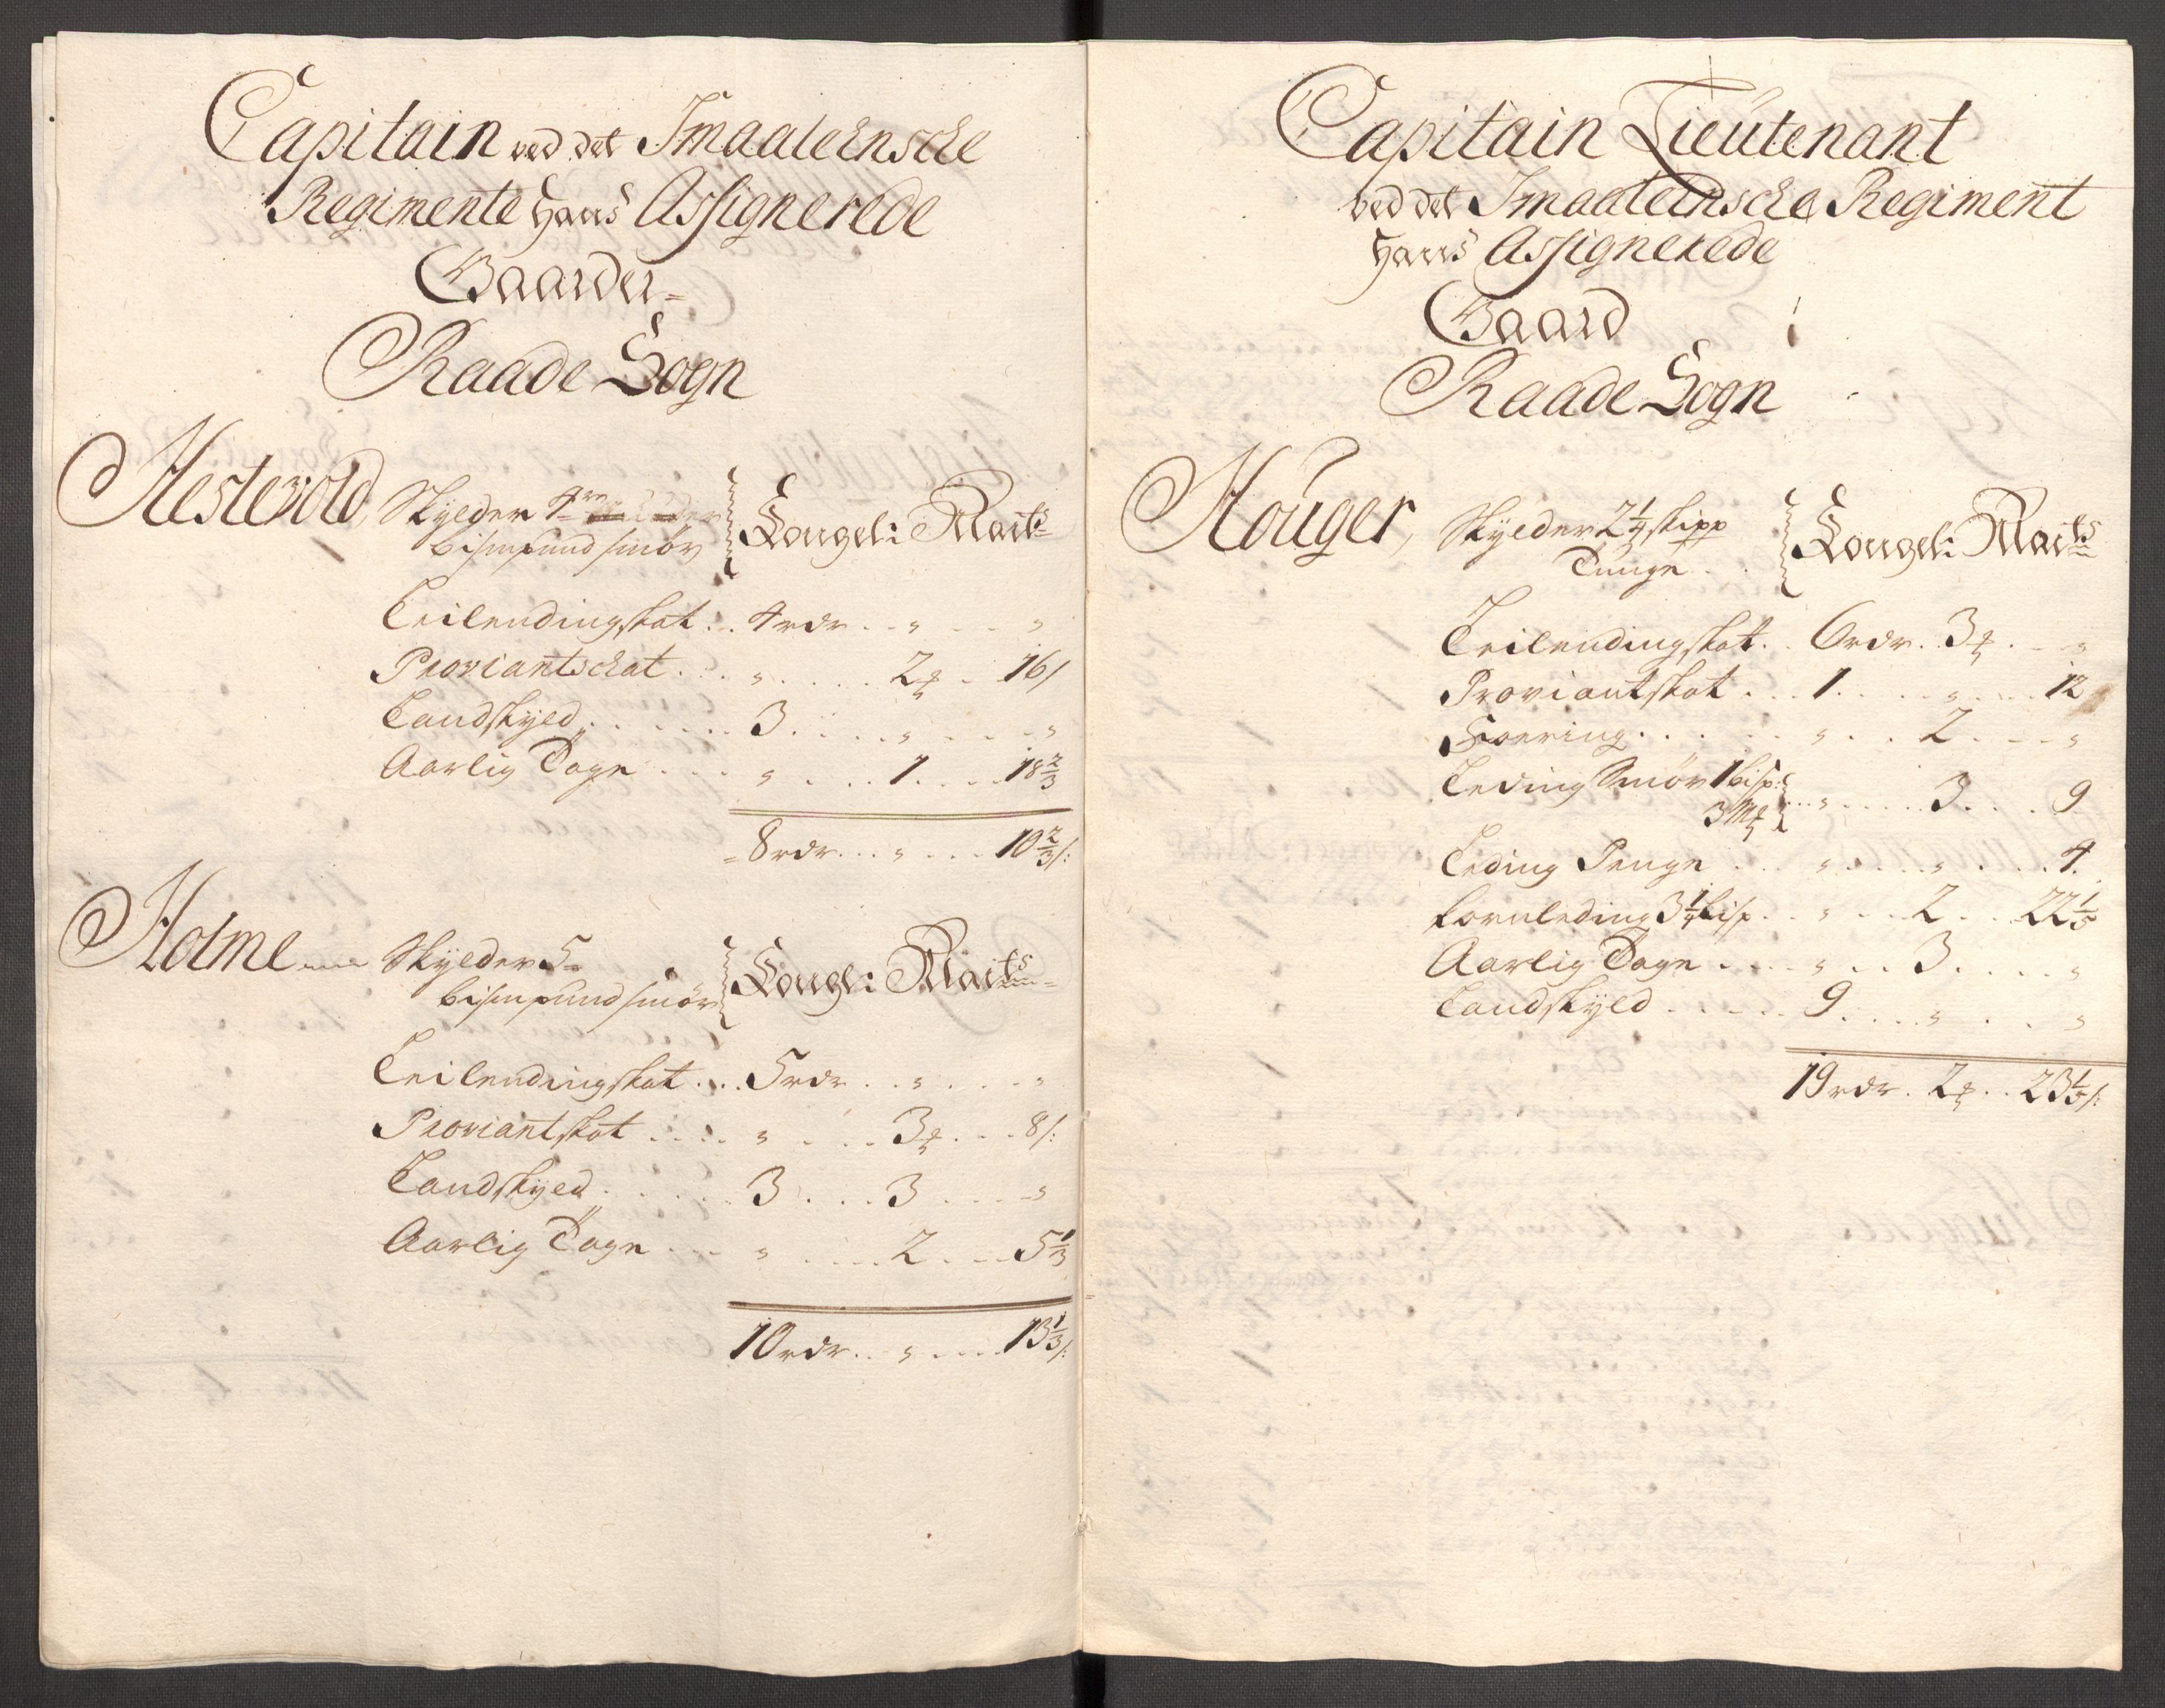 Capitain ved det Smaalehnsche
Regimente Hans Assignerede
Gaarder=
Raade Sogn
Hestevold, Skylder 4re
bismpund smör } Kongel: Maits
Leilendingskat . . 4 rdr . . " . . "
Proviantschat . . . " . . . . 2 ₰ . . 16 s
Landskyld . . . . . 3 . . . . " . . . . "
Aarlig Tage . . . " . . . . 1 . . . . 18 2/3
= 8 rdr . . . " . . . 10 2/3 s:
Holme Skylder 5
bismpund smör } Kongl: Maits
Leilendingskat . . . 5 rdr . . " . . . "
Proviantskat . . . . " . . . . 3 ₰ . . . 8 s:
Landskyld . . . . . 3 . . . 3 . . . . "
Aarlig Tage . . . " . . . . 2 . . . 5 1/3
10 rdr . . " . . . . 13 1/3 s:
Capitain Lieutenant
ved det Smaalehnsche Regiment
Hans Assignerede
Gaard
Raade Sogn
Houger, Skylder 2 1/4 skipp
Tunge . . } Kongel: Maits
Leilendingskat . . 6 rdr . 3 ₰ . . "
Proviantskat . . . 1 . . . . " . . . . 12
Foering . . . . . . " . . . 2 . . . "
Leding Smör 1 bisp:
3 Mk } . . . " . . . . . 3 . . . . 9
Leding Penge . . . " . . . . " . . . . 4
Kornleding 3 1/4 lisp . . " . . . 2 . . 22 1/5
Aarlig Tage . . . . " . . . 3 . . . . "
Landskyld . . . . . 9 . . . . " . . . "
19 rdr . 2 ₰ . . 23 1/5 s: